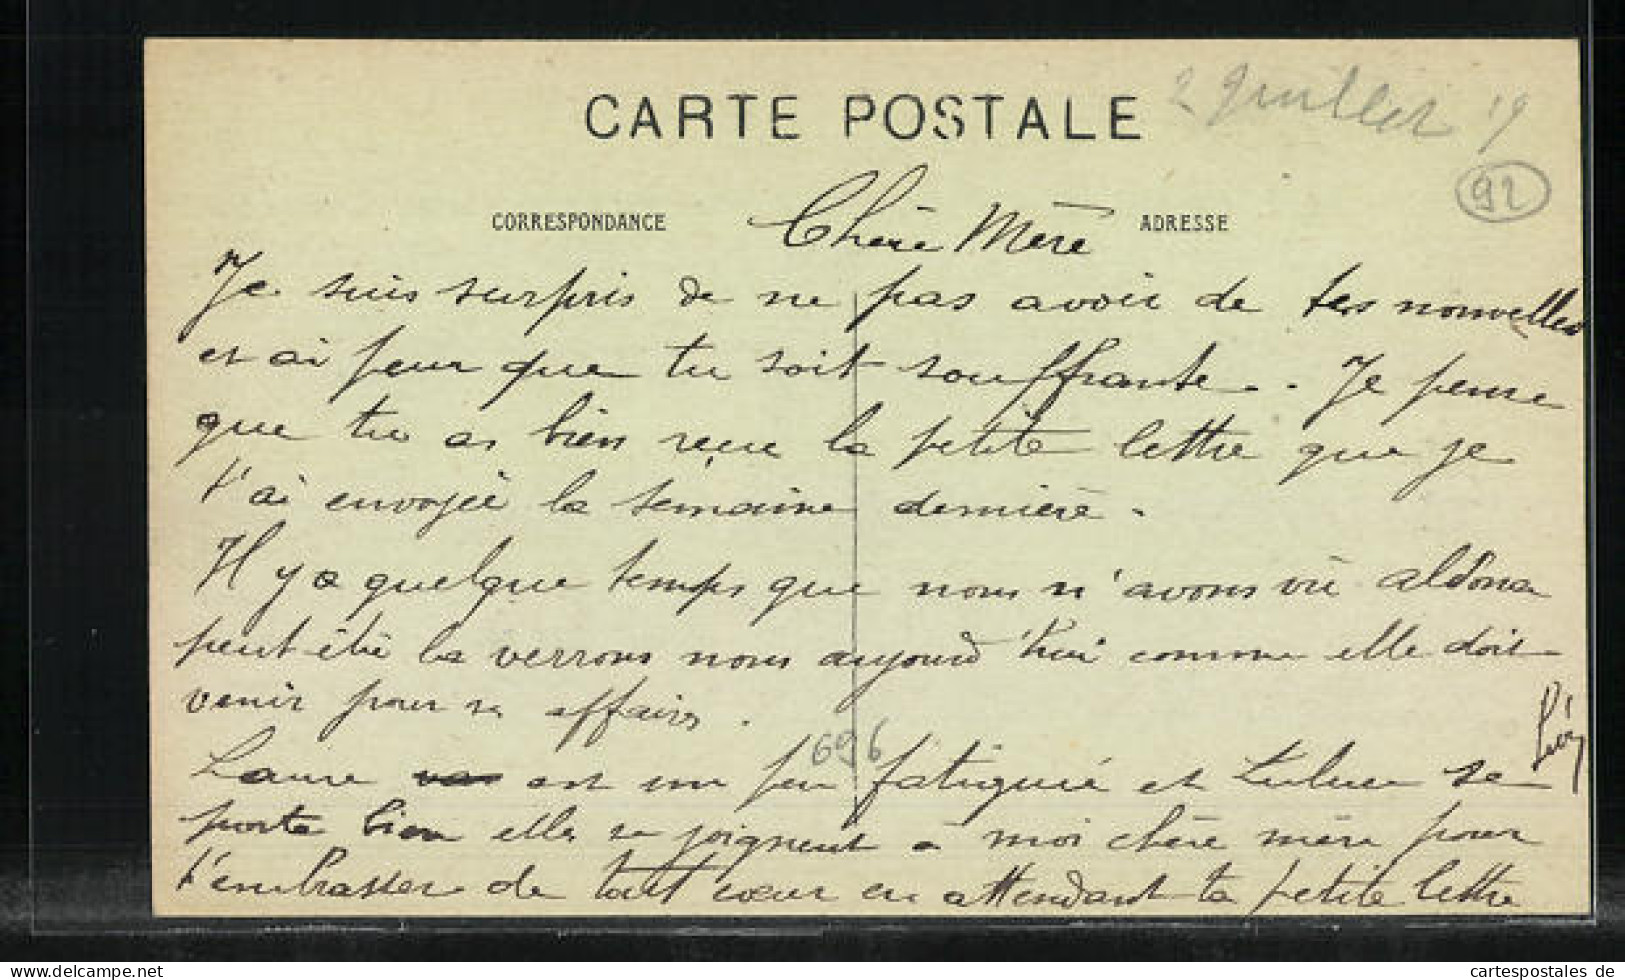 2 Juillet 19
CARTE POSTALE
92
CORRESPONDANCE
ADRESSE
Chère Mère
Je suis surpris de ne pas avoir de tes nouvelles
et ai peur que tu soit souffrante. Je pense
que tu as bien reçue la petite lettre que je
t'ai envoyée la semaine dernière.
Il y a quelque temps que nous n'avons vu aldona
peut être la verrons nous aujourd'hui comme elle doit
venir pour sa affaires.
696
Laure est un peu fatiguée et Lulune se
porte bien elle se joignent à moi chère mère pour
t'embrasser de tout cœur en attendant ta petite lettre
cartespostales de